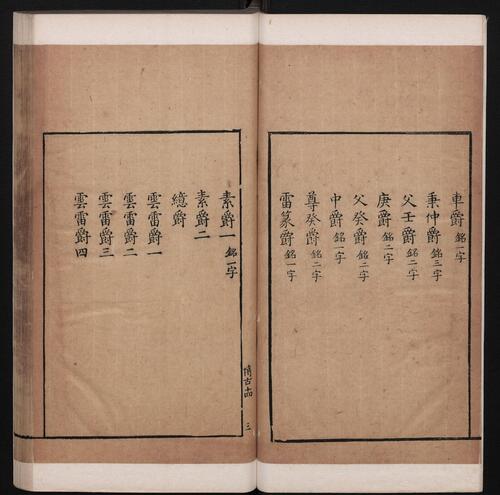 車爵 銘一字
秉仲爵 銘三字
父壬爵 銘二字
庚爵 銘二字
父癸爵 銘二字
中爵 銘一字
尊癸爵 銘二字
雷篆爵 銘一字
素爵一 銘一字
素爵二
繶爵
雲雷爵一
雲雷爵二
雲雷爵三
雲雷爵四
三